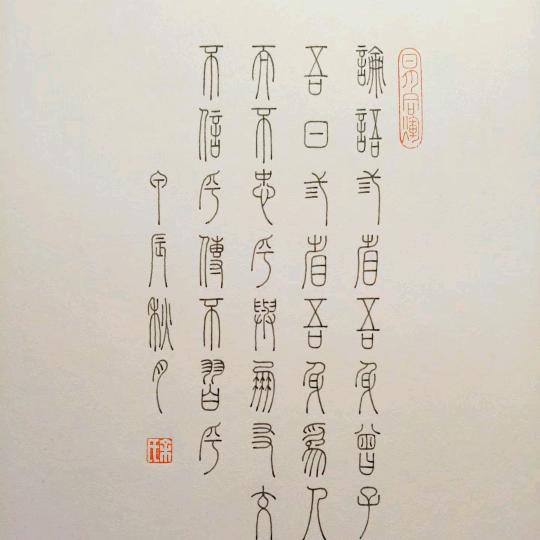 論語弎省吾身曾子
吾日弎省吾身爲人
而不忠乎與朋友交
不信乎傳不習乎
甲辰秋月